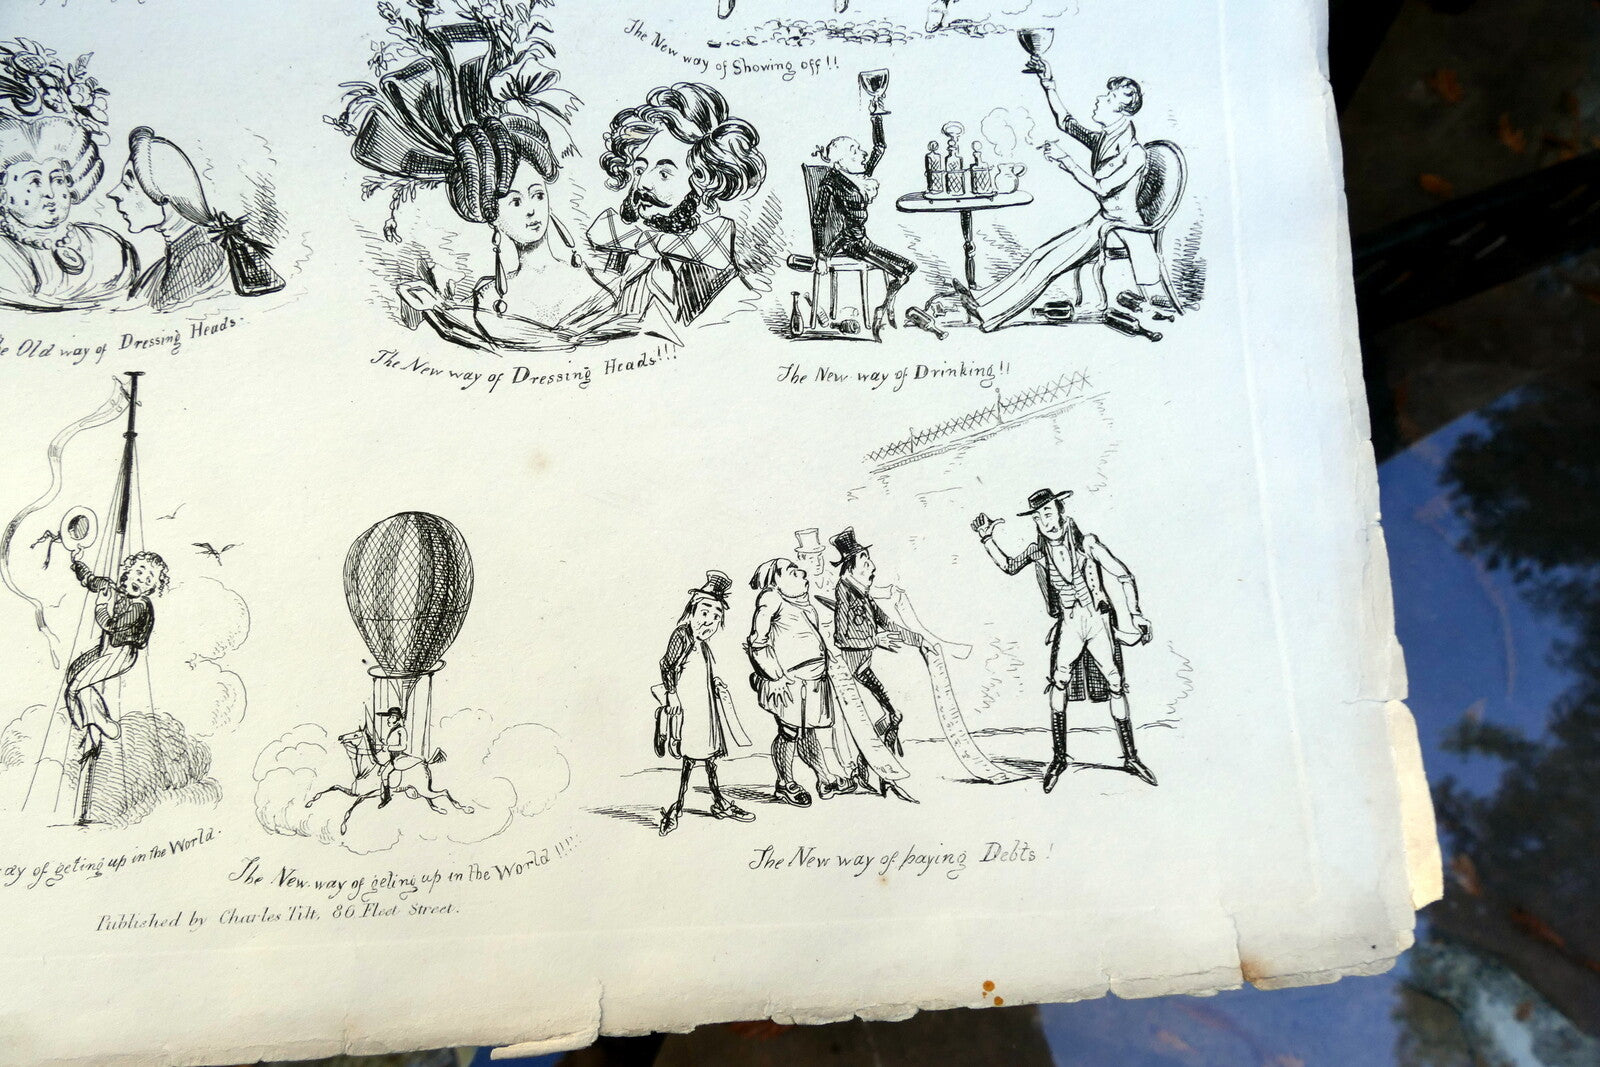 The New way of Showing off!!
Old way of Dressing Heads.
The New way of Dressing Heads!!!
The New way of Drinking!!
way of geting up in the World.
The New way of geting up in the World!!!!!
The New way of paying Debts!
Published by Charles Tilt, 86 Fleet Street.